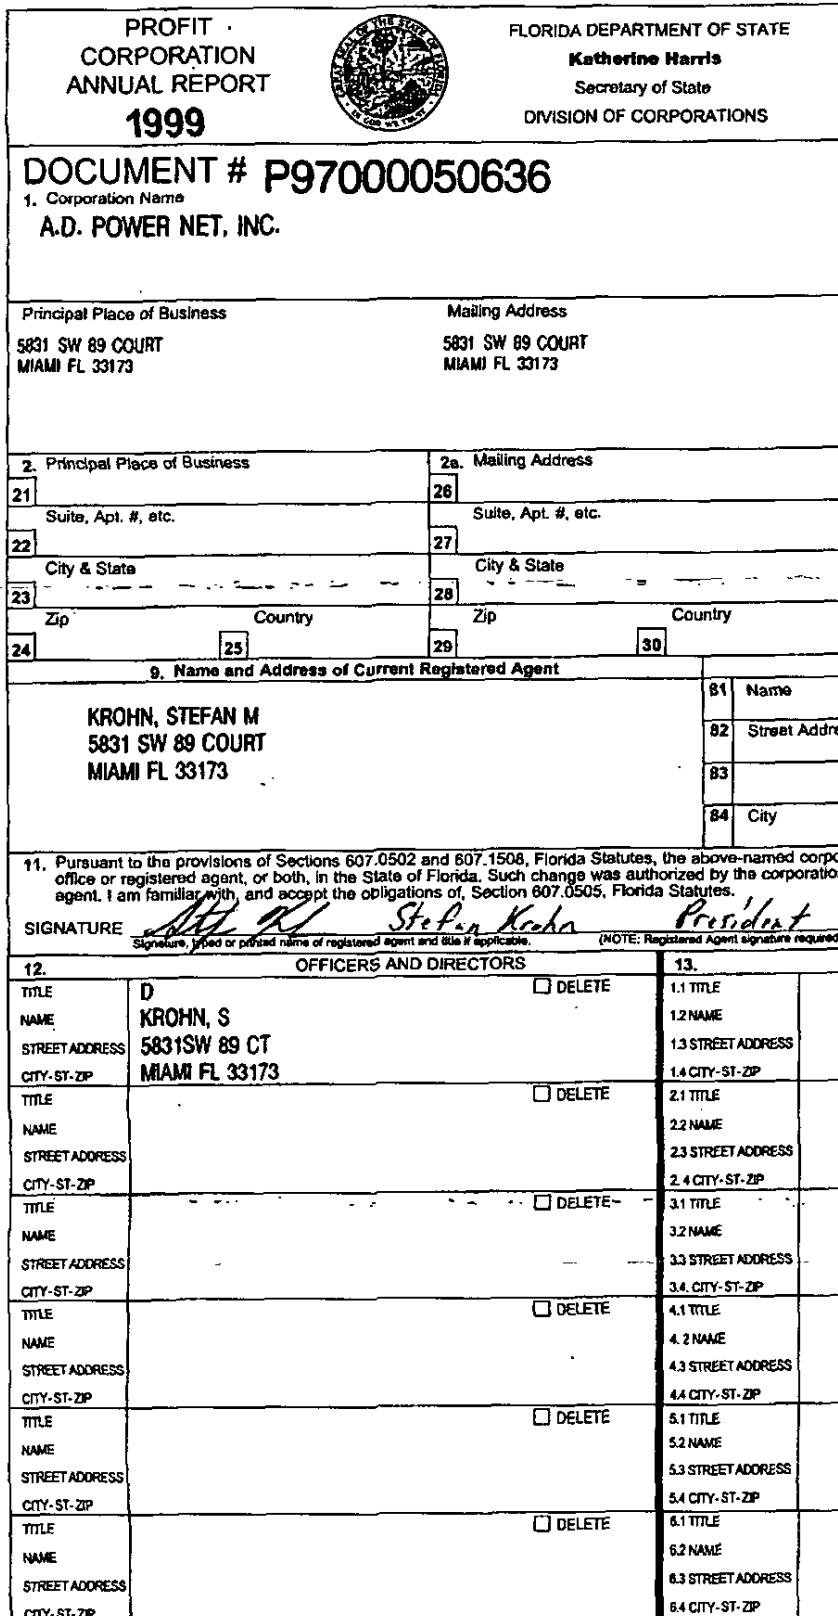 PROFIT
CORPORATION
ANNUAL REPORT
1999
FLORIDA DEPARTMENT OF STATE
Katherine Harris
Secretary of State
DIVISION OF CORPORATIONS
GREAT SEAL OF THE STATE OF FLORIDA
IN GOD WE TRUST
DOCUMENT # P97000050636
1. Corporation Name
A.D. POWER NET, INC.
Principal Place of Business
Mailing Address
5831 SW 89 COURT
MIAMI FL 33173
5831 SW 89 COURT
MIAMI FL 33173
2. Principal Place of Business
2a. Mailing Address
21
26
Suite, Apt. #, etc.
Suite, Apt. #, etc.
22
27
City & State
City & State
23
28
Zip
Country
Zip
Country
24
25
29
30
9. Name and Address of Current Registered Agent
KROHN, STEFAN M
5831 SW 89 COURT
MIAMI FL 33173
81 Name
82 Street Addre
83
84 City
11. Pursuant to the provisions of Sections 607.0502 and 607.1508, Florida Statutes, the above-named corpo
office or registered agent, or both, in the State of Florida. Such change was authorized by the corporatio
agent. I am familiar with, and accept the obligations of, Section 607.0505, Florida Statutes.
SIGNATURE Stefan Krohn President
Signature, typed or printed name of registered agent and title if applicable. (NOTE: Registered Agent signature required
12. OFFICERS AND DIRECTORS
13.
TITLE D DELETE
NAME KROHN, S
STREET ADDRESS 5831SW 89 CT
CITY-ST-ZIP MIAMI FL 33173
1.1 TITLE
1.2 NAME
1.3 STREET ADDRESS
1.4 CITY-ST-ZIP
TITLE DELETE
NAME
STREET ADDRESS
CITY-ST-ZIP
2.1 TITLE
2.2 NAME
2.3 STREET ADDRESS
2.4 CITY-ST-ZIP
TITLE DELETE
NAME
STREET ADDRESS
CITY-ST-ZIP
3.1 TITLE
3.2 NAME
3.3 STREET ADDRESS
3.4. CITY-ST-ZIP
TITLE DELETE
NAME
STREET ADDRESS
CITY-ST-ZIP
4.1 TITLE
4.2 NAME
4.3 STREET ADDRESS
4.4 CITY-ST-ZIP
TITLE DELETE
NAME
STREET ADDRESS
CITY-ST-ZIP
5.1 TITLE
5.2 NAME
5.3 STREET ADDRESS
5.4 CITY-ST-ZIP
TITLE DELETE
NAME
STREET ADDRESS
CITY-ST-ZIP
6.1 TITLE
6.2 NAME
6.3 STREET ADDRESS
6.4 CITY-ST-ZIP